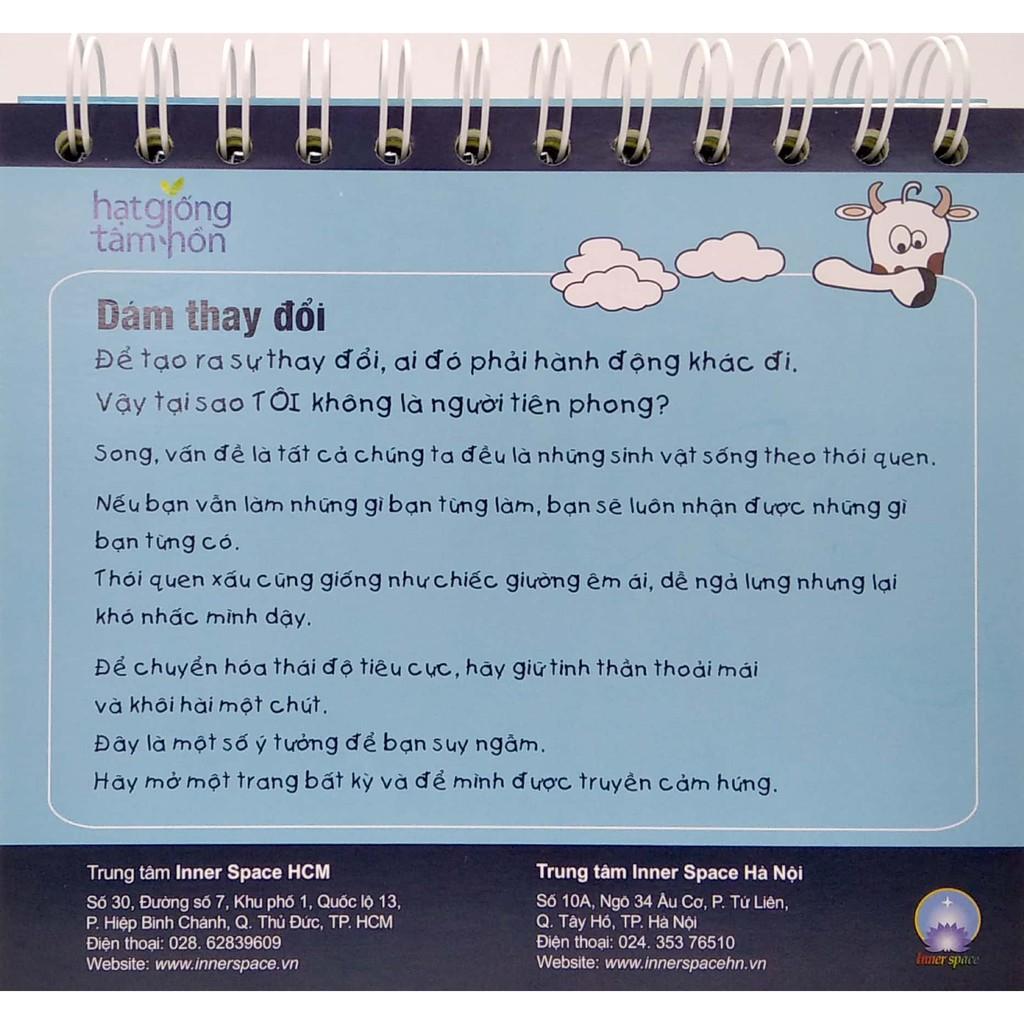 hạt giống
tâm hồn
Dám thay đổi
Để tạo ra sự thay đổi, ai đó phải hành động khác đi.
Vậy tại sao TÔI không là người tiên phong?
Song, vấn đề là tất cả chúng ta đều là những sinh vật sống theo thói quen.
Nếu bạn vẫn làm những gì bạn từng làm, bạn sẽ luôn nhận được những gì
bạn từng có.
Thói quen xấu cũng giống như chiếc giường êm ái, dễ ngả lưng nhưng lại
khó nhấc mình dậy.
Để chuyển hóa thái độ tiêu cực, hãy giữ tinh thần thoải mái
và khôi hài một chút.
Đây là một số ý tưởng để bạn suy ngẫm.
Hãy mở một trang bất kỳ và để mình được truyền cảm hứng.
Trung tâm Inner Space HCM
Số 30, Đường số 7, Khu phố 1, Quốc lộ 13,
P. Hiệp Bình Chánh, Q. Thủ Đức, TP. HCM
Điện thoại: 028. 62839609
Website: www.innerspace.vn
Trung tâm Inner Space Hà Nội
Số 10A, Ngõ 34 Âu Cơ, P. Tứ Liên,
Q. Tây Hồ, TP. Hà Nội
Điện thoại: 024. 353 76510
Website: www.innerspacehn.vn
Inner space